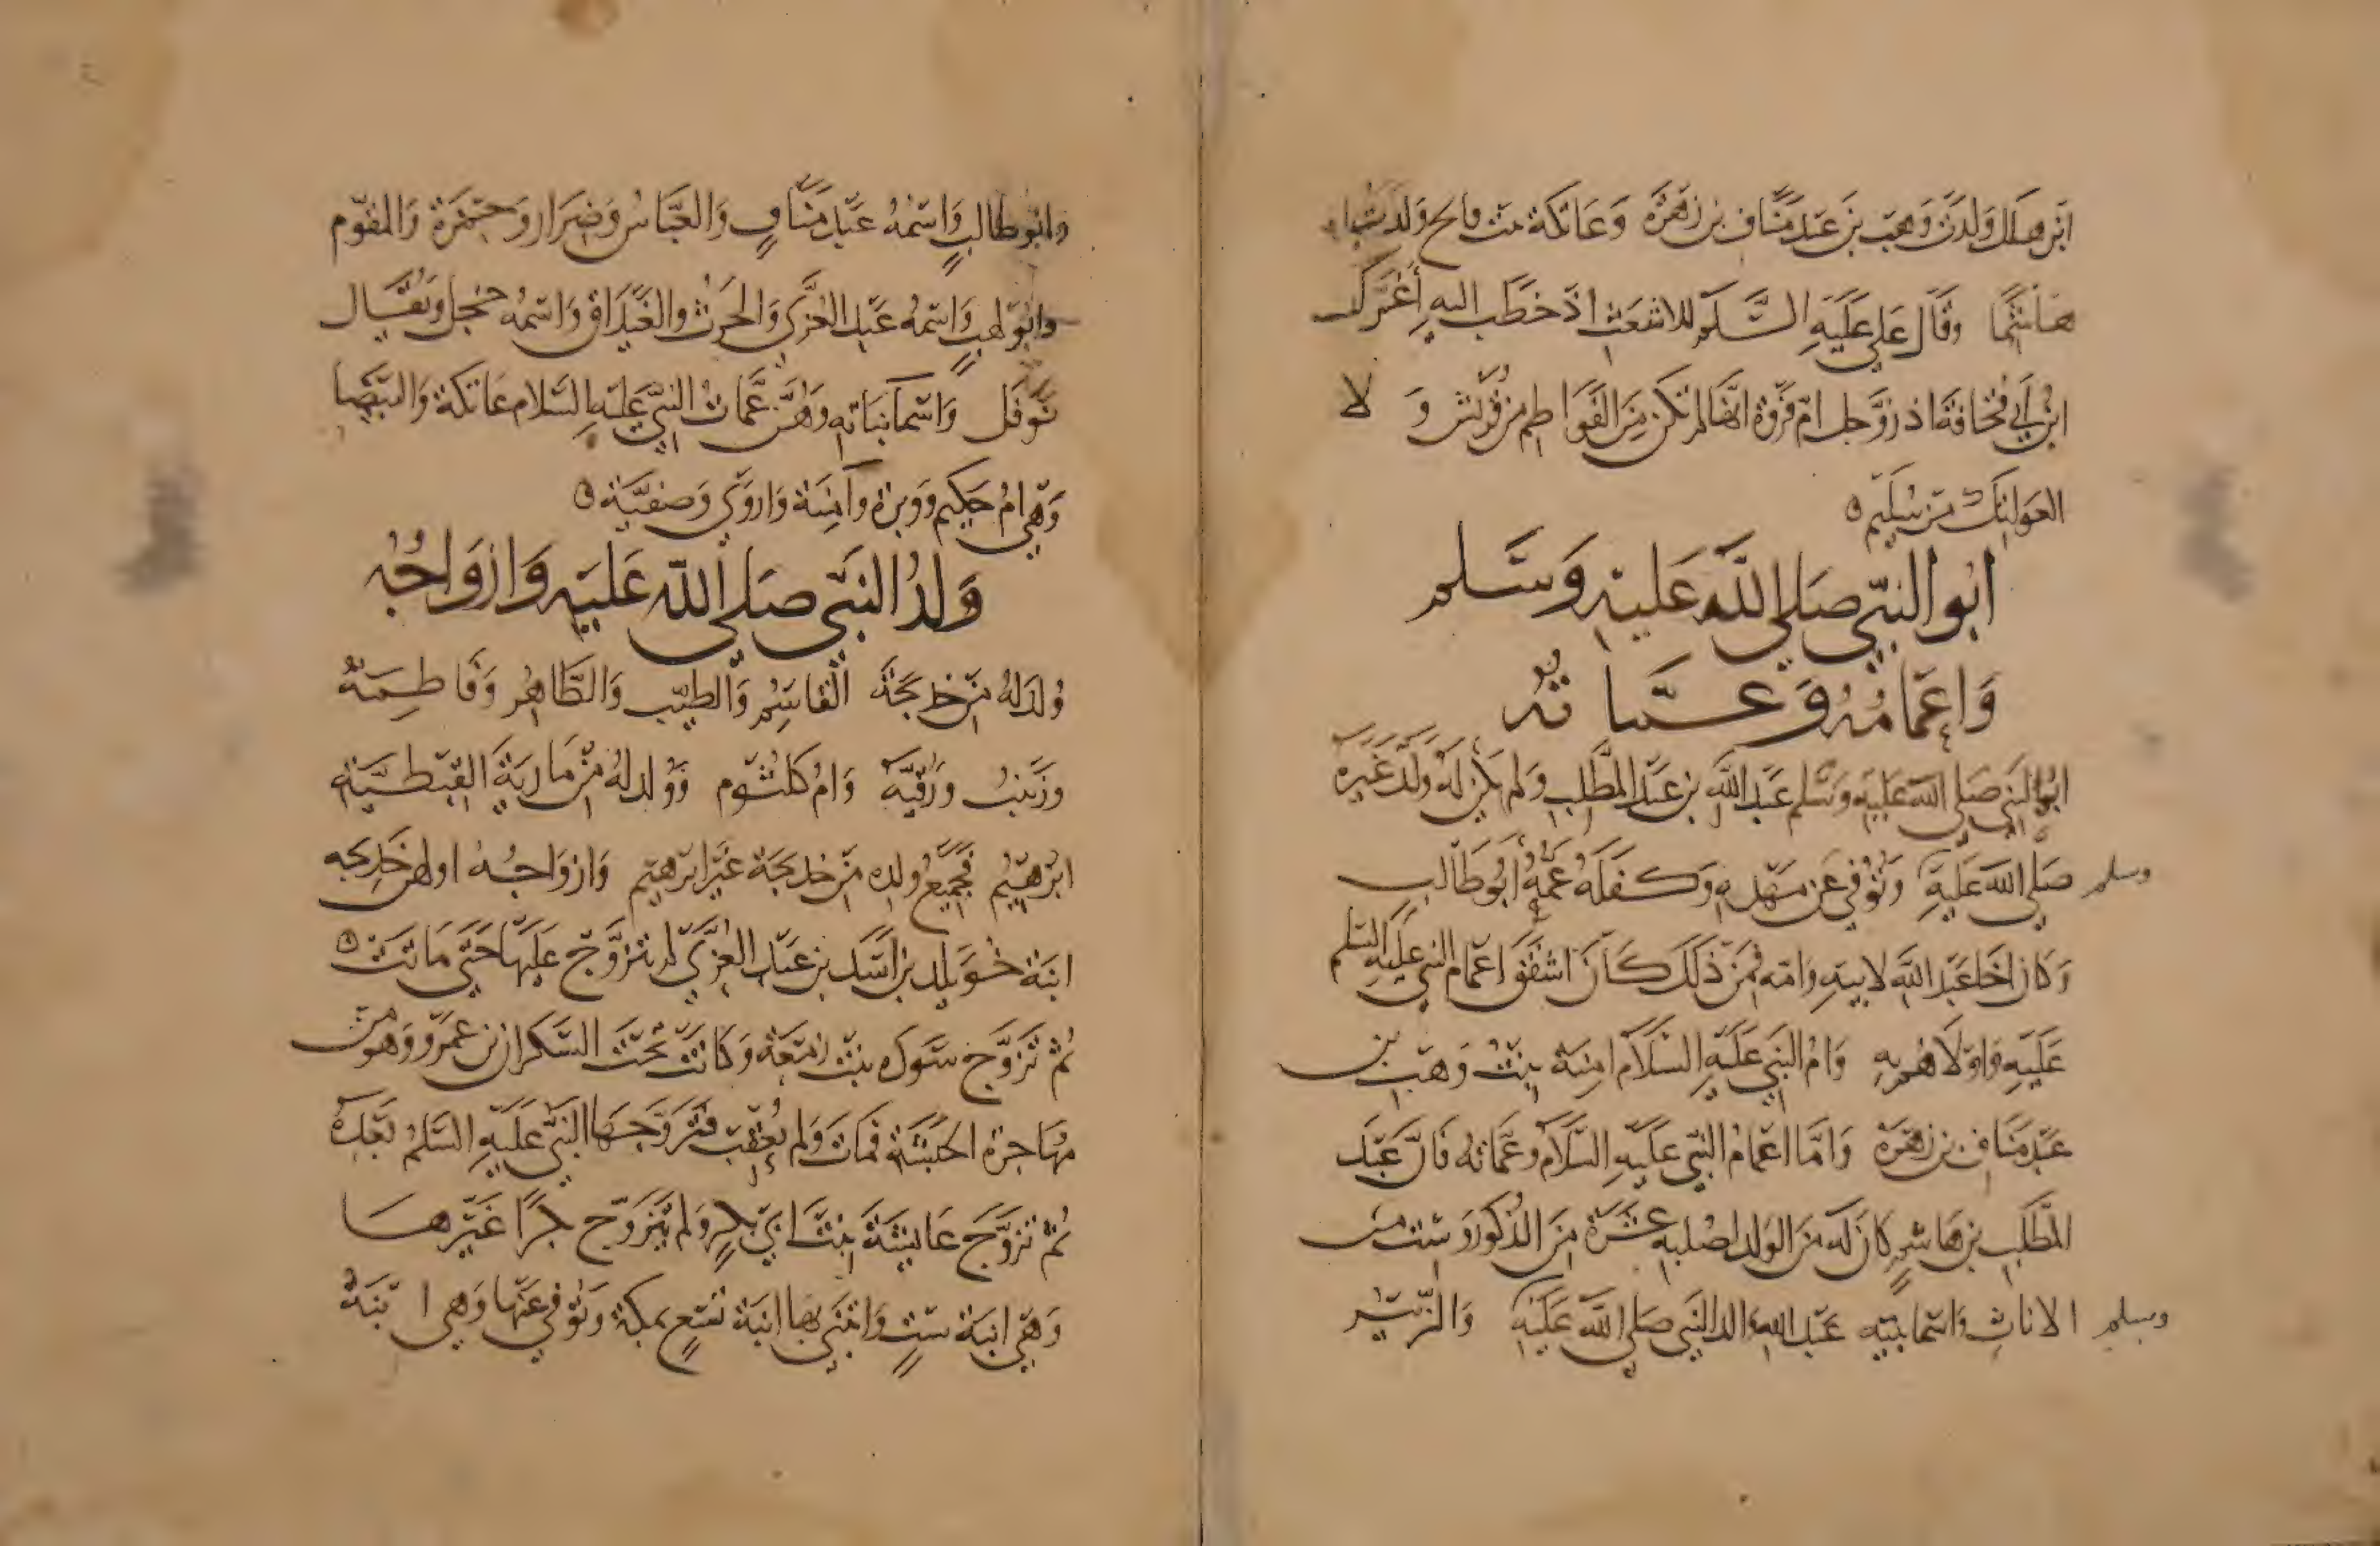 ابن هلال ولدت وهب بن عبد مناف بن زهرة وعاتكة بنت فالح ولدت
هاشما وقال علي عليه السلام للاشعث اذ خطب اليه أغرك
ابن أبي قحافة اذ زوجك ام فروة انها لم تكن من الفواطم من قريش و لا
العواتك من سليم
ابو النبي صلى الله عليه وسلم
واعمامه وعماته
ابو النبي صلى الله عليه وسلم عبد الله بن عبد المطلب ولم يكن له ولد غيره
صلى الله عليه وسلم وتوفي عن مهده وكفله عمه أبو طالب
وكان اخا عبد الله لابيه وامه فمن ذلك كان اشفق اعمام النبي عليه السلم
عليه واولاهم به وام النبي عليه السلام امنة بنت وهب بن
عبد مناف بن زهرة واما اعمام النبي عليه السلام وعماته فان عبد
المطلب بن هاشم كان له من الولد لصلبه عشرة من الذكور وست من
الاناث واسما بنيه عبد الله والد النبي صلى الله عليه وسلم والزبير
وابو طالب واسمه عبد مناف والعباس وضرار وحمزة والمقوم
وابو لهب واسمه عبد العزى والحرث والغيداق واسمه حجل ويقال
نوفل واسما بناته وهن عمات النبي عليه السلام عاتكة والبيضا
وهي ام حكيم وبرة وآمنة واروى وصفية
ولد النبي صلى الله عليه وازواجه
ولد له من خديجة القاسم والطيب والطاهر وفاطمة
وزينب ورقية وام كلثوم وولد له من مارية القبطية
ابرهيم فجميع ولده من خديجة غير ابرهيم وازواجه اولهن خديجه
ابنة خويلد بن اسد بن عبد العزى لم يتزوج عليها حتى ماتت
ثم تزوج سوده بنت زمعة وكانت تحت السكران بن عمرو وهو من
مهاجرة الحبشة فمات ولم يعقب فتزوجها النبي عليه السلم بعده
ثم تزوج عايشة ابنت ابي بكر ولم يتزوج بكرا غيرها
وهي ابنة ست وابتنى بها ابنة تسع بمكة وتوفي عنها وهي ابنة